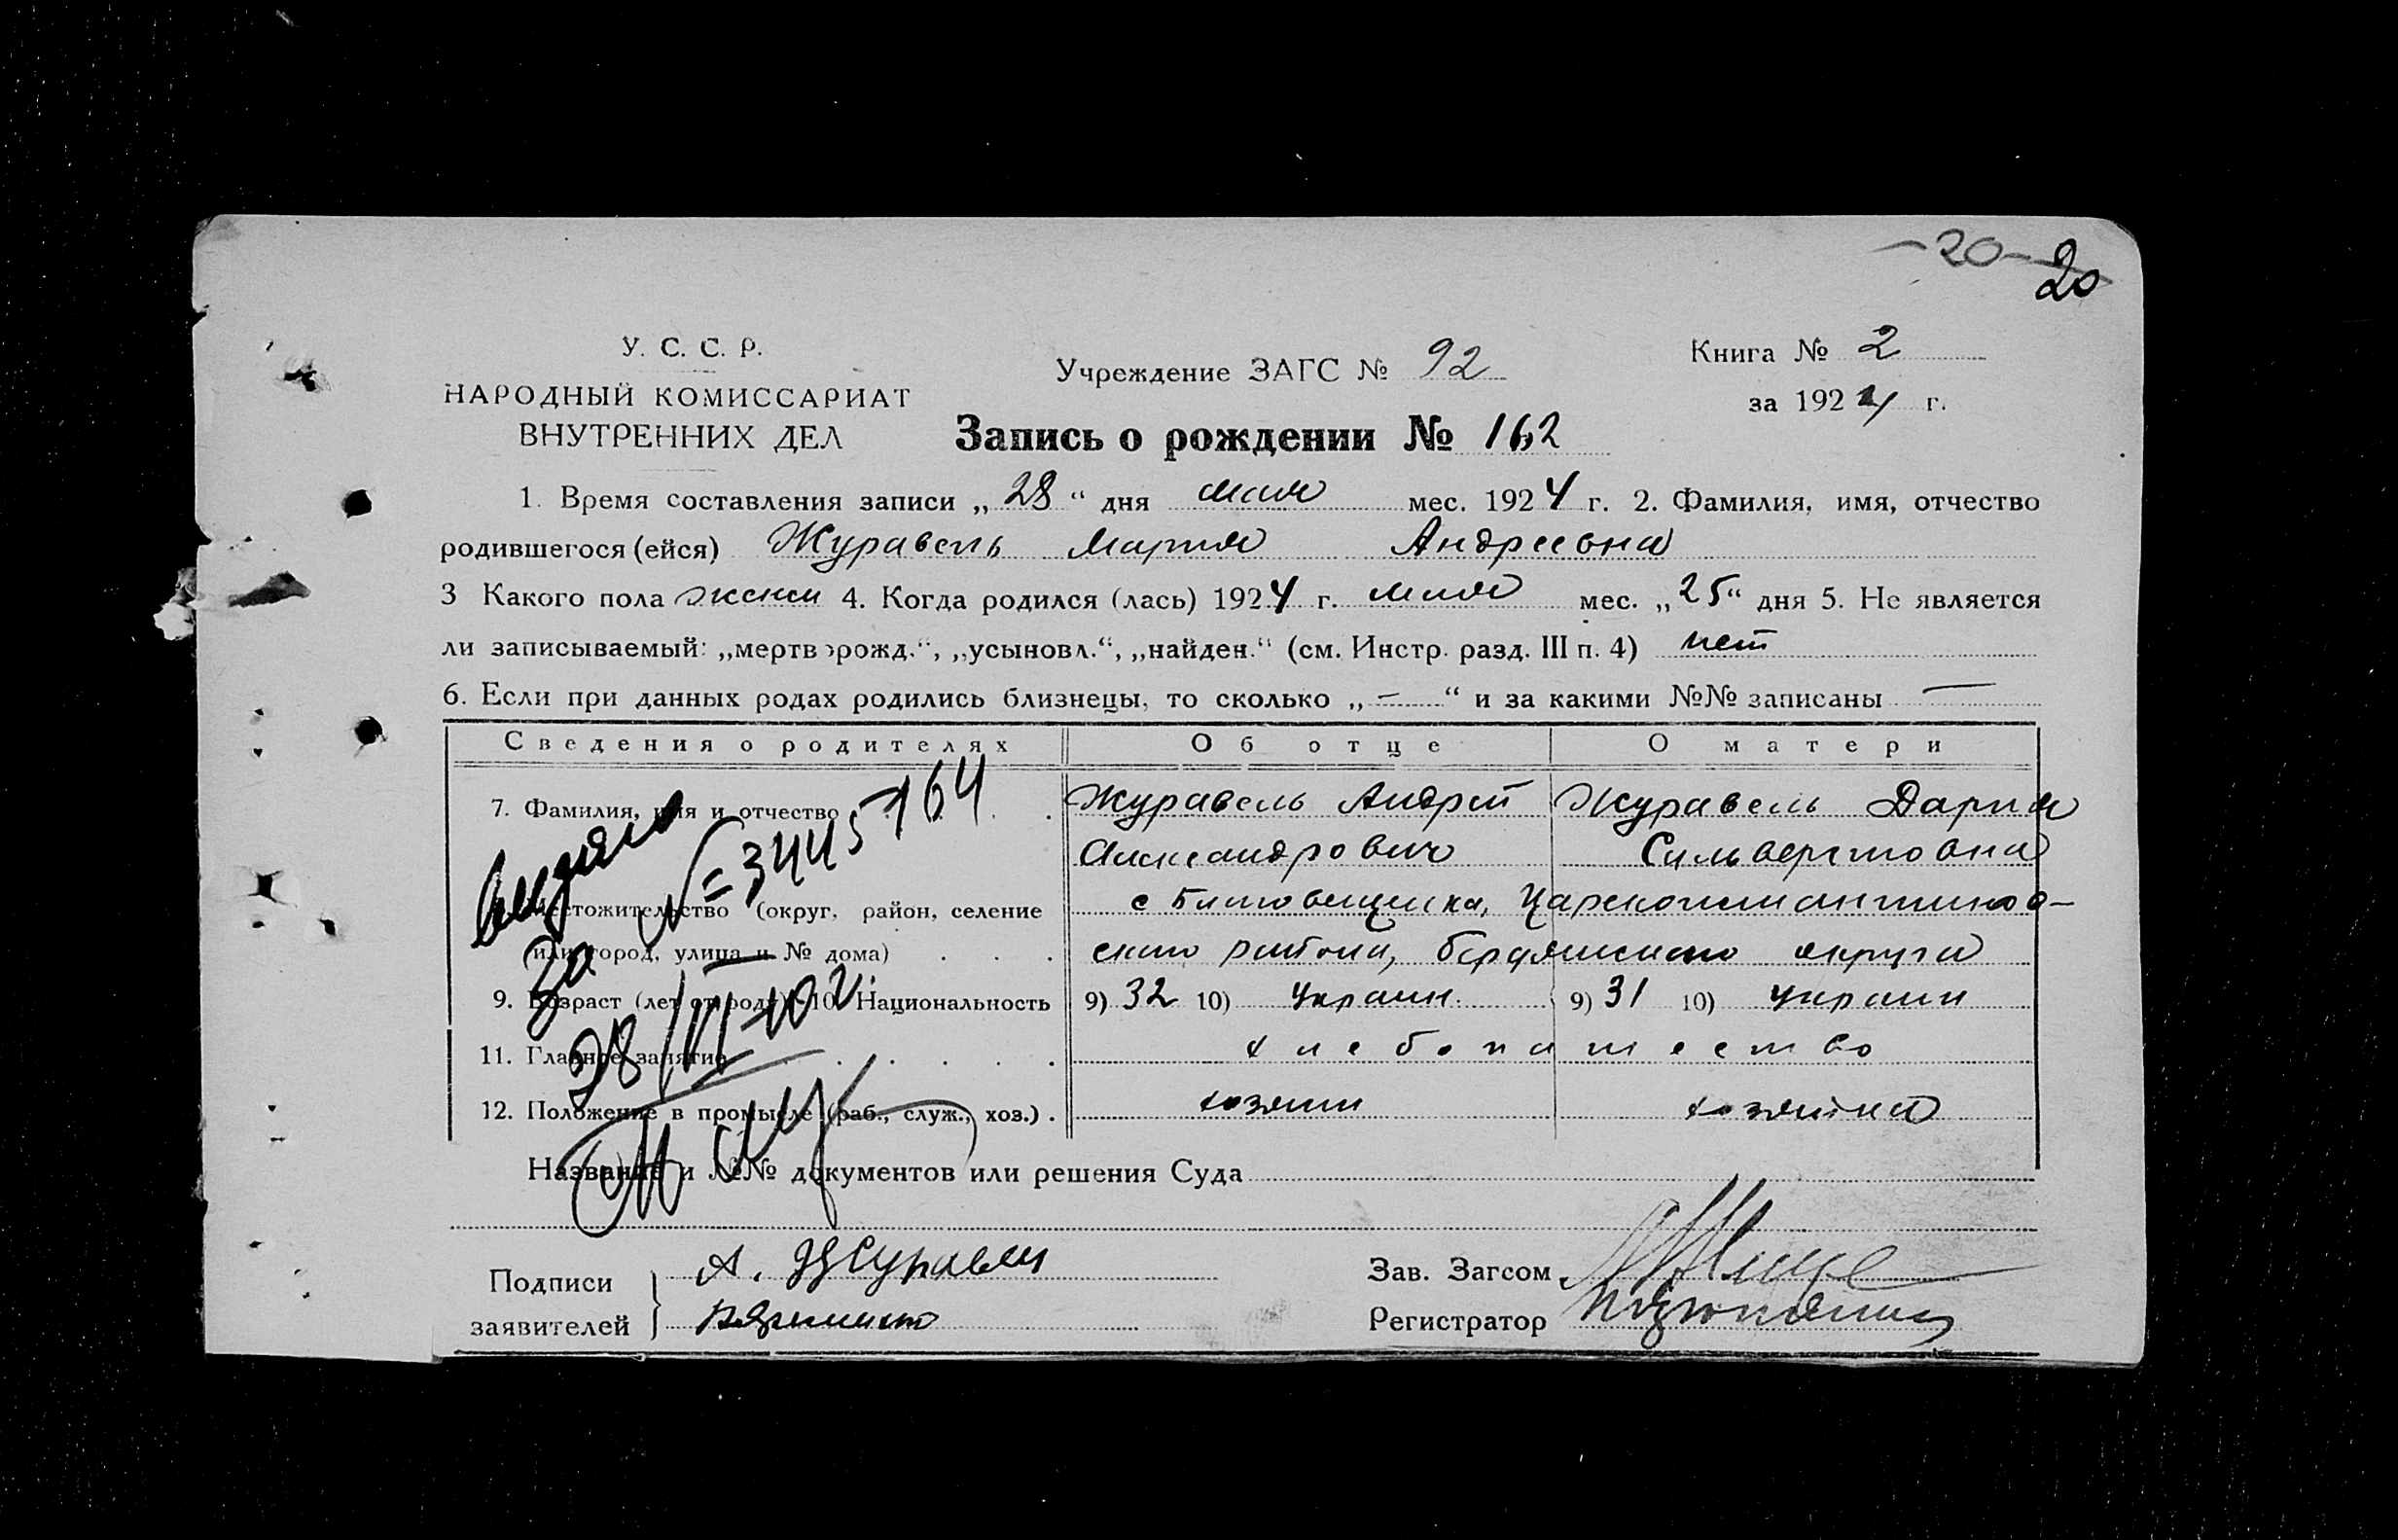 -20- 20
У. С. С. Р.
НАРОДНЫЙ КОМИССАРИАТ
ВНУТРЕННИХ ДЕЛ
Учреждение ЗАГС № 92
Книга № 2
за 1924 г.
Запись о рождении № 162
1. Время составления записи „28“ дня мая мес. 1924 г. 2. Фамилия, имя, отчество
родившегося (ейся) Журавель Мария Андреевна
3 Какого пола женск 4. Когда родился (лась) 1924 г. мая мес. „25“ дня 5. Не является
ли записываемый: „мертворожд.“, „усыновл.“, „найден.“ (см. Инстр. разд. III п. 4) нет
6. Если при данных родах родились близнецы, то сколько „—“ и за какими №№ записаны —
Сведения о родителях Об отце О матери
7. Фамилия, имя и отчество Журавель Андрей Журавель Дария
Александрович Сильверстовна
местожительство (округ, район, селение с Благовещенка, Цареконстантинов-
или город, улица и № дома) ского района, бердянского округа
9. Возраст (лет от роду) 10. Национальность 9) 32 10) Украин. 9) 31 10) Украин
11. Главное занятие хлебопашество
12. Положение в промысле (раб., служ., хоз.) хозяин хозяйка
за №=3445-164
28/III
Название и №№ документов или решения Суда
Подписи заявителей А. Журавель
Зав. Загсом
Регистратор